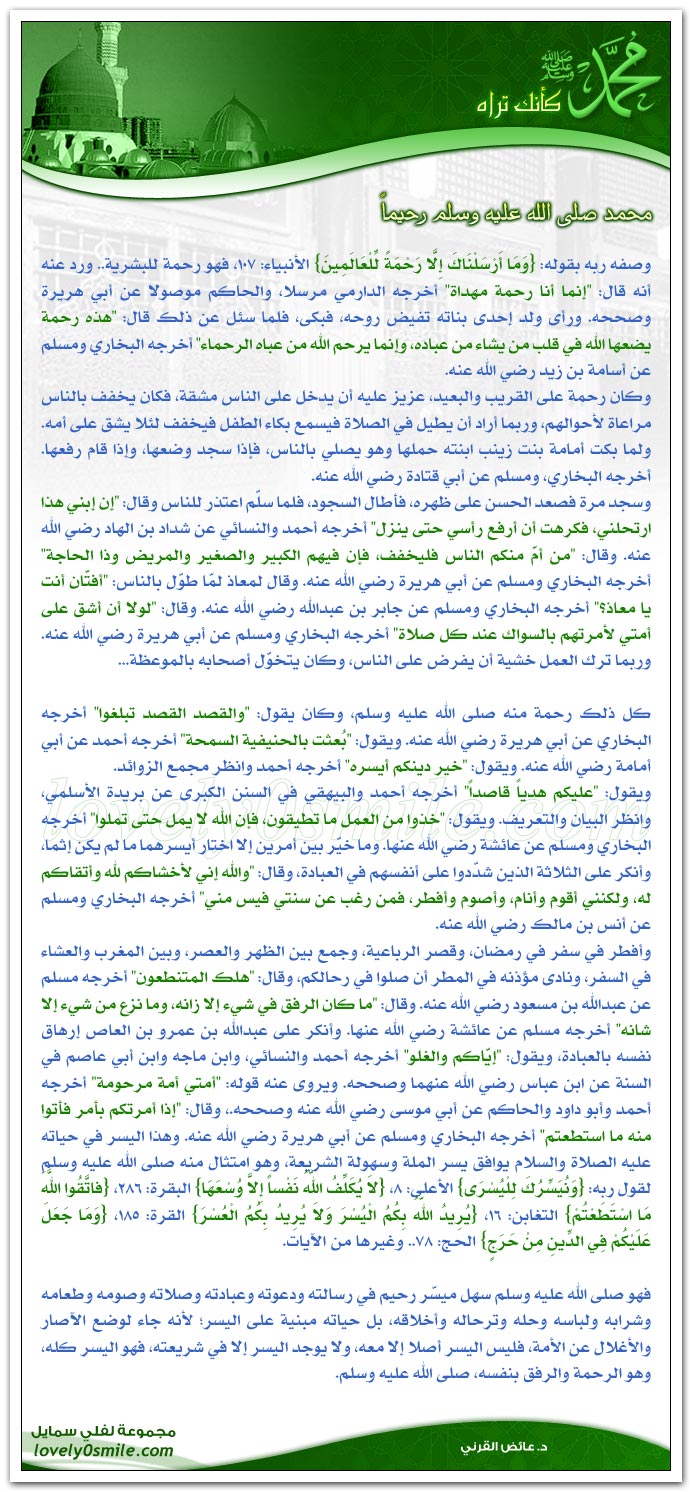 محمد
صلى الله عليه وسلم
كأنك تراه
محمد صلى الله عليه وسلم رحيماً
وصفه ربه بقوله: {وَمَا أَرْسَلْنَاكَ إِلَّا رَحْمَةً لِّلْعَالَمِينَ} الأنبياء: ١٠٧، فهو رحمة للبشرية.. ورد عنه
أنه قال: "إنما أنا رحمة مهداة" أخرجه الدارمي مرسلا، والحاكم موصولا عن أبي هريرة
وصححه. ورأى ولد إحدى بناته تفيض روحه، فبكى، فلما سئل عن ذلك قال: "هذه رحمة
يضعها الله في قلب من يشاء من عباده، وإنما يرحم الله من عباه الرحماء" أخرجه البخاري ومسلم
عن أسامة بن زيد رضي الله عنه.
وكان رحمة على القريب والبعيد، عزيز عليه أن يدخل على الناس مشقة، فكان يخفف بالناس
مراعاة لأحوالهم، وربما أراد أن يطيل في الصلاة فيسمع بكاء الطفل فيخفف لئلا يشق على أمه.
ولما بكت أمامة بنت زينب ابنته حملها وهو يصلي بالناس، فإذا سجد وضعها، وإذا قام رفعها.
أخرجه البخاري، ومسلم عن أبي قتادة رضي الله عنه.
وسجد مرة فصعد الحسن على ظهره، فأطال السجود، فلما سلّم اعتذر للناس وقال: "إن إبني هذا
ارتحلني، فكرهت أن أرفع رأسي حتى ينزل" أخرجه أحمد والنسائي عن شداد بن الهاد رضي الله
عنه. وقال: "من أمّ منكم الناس فليخفف، فإن فيهم الكبير والصغير والمريض وذا الحاجة"
أخرجه البخاري ومسلم عن أبي هريرة رضي الله عنه. وقال لمعاذ لمّا طوّل بالناس: "أفتّان أنت
يا معاذ؟" أخرجه البخاري ومسلم عن جابر بن عبدالله رضي الله عنه. وقال: "لولا أن أشق على
أمتي لأمرتهم بالسواك عند كل صلاة" أخرجه البخاري ومسلم عن أبي هريرة رضي الله عنه.
وربما ترك العمل خشية أن يفرض على الناس، وكان يتخوّل أصحابه بالموعظة...
كل ذلك رحمة منه صلى الله عليه وسلم، وكان يقول: "والقصد القصد تبلغوا" أخرجه
البخاري عن أبي هريرة رضي الله عنه. ويقول: "بُعثت بالحنيفية السمحة" أخرجه أحمد عن أبي
أمامة رضي الله عنه. ويقول: "خير دينكم أيسره" أخرجه أحمد وانظر مجمع الزوائد.
ويقول: "عليكم هدياً قاصداً" أخرجه أحمد والبيهقي في السنن الكبرى عن بريدة الأسلمي،
وانظر البيان والتعريف. ويقول: "خذوا من العمل ما تطيقون، فإن الله لا يمل حتى تملوا" أخرجه
البخاري ومسلم عن عائشة رضي الله عنها. وما خيّر بين أمرين إلا اختار أيسرهما ما لم يكن إثما،
وأنكر على الثلاثة الذين شدّدوا على أنفسهم في العبادة، وقال: "والله إني لأخشاكم لله وأتقاكم
له، ولكنني أقوم وأنام، وأصوم وأفطر، فمن رغب عن سنتي فيس مني" أخرجه البخاري ومسلم
عن أنس بن مالك رضي الله عنه.
وأفطر في سفر في رمضان، وقصر الرباعية، وجمع بين الظهر والعصر، وبين المغرب والعشاء
في السفر، ونادى مؤذنه في المطر أن صلوا في رحالكم، وقال: "هلك المتنطعون" أخرجه مسلم
عن عبدالله بن مسعود رضي الله عنه. وقال: "ما كان الرفق في شيء إلا زانه، وما نزع من شيء إلا
شانه" أخرجه مسلم عن عائشة رضي الله عنها. وأنكر على عبدالله بن عمرو بن العاص إرهاق
نفسه بالعبادة، ويقول: "إيّاكم والغلو" أخرجه أحمد والنسائي، وابن ماجه وابن أبي عاصم في
السنة عن ابن عباس رضي الله عنهما وصححه. ويروى عنه قوله: "أمتي أمة مرحومة" أخرجه
أحمد وأبو داود والحاكم عن أبي موسى رضي الله عنه وصححه.، وقال: "إذا أمرتكم بأمر فأتوا
منه ما استطعتم" أخرجه البخاري ومسلم عن أبي هريرة رضي الله عنه. وهذا اليسر في حياته
عليه الصلاة والسلام يوافق يسر الملة وسهولة الشريعة، وهو امتثال منه صلى الله عليه وسلم
لقول ربه: {وَنُيَسِّرُكَ لِلْيُسْرَى} الأعلى: ٨، {لاَ يُكَلِّفُ اللّهُ نَفْساً إِلاَّ وُسْعَهَا} البقرة: ٢٨٦، {فَاتَّقُوا اللَّهَ
مَا اسْتَطَعْتُمْ} التغابن: ١٦، {يُرِيدُ اللّهُ بِكُمُ الْيُسْرَ وَلاَ يُرِيدُ بِكُمُ الْعُسْرَ} القرة: ١٨٥، {وَمَا جَعَلَ
عَلَيْكُمْ فِي الدِّينِ مِنْ حَرَجٍ} الحج: ٧٨.. وغيرها من الآيات.
فهو صلى الله عليه وسلم سهل ميسّر رحيم في رسالته ودعوته وعبادته وصلاته وصومه وطعامه
وشرابه ولباسه وحله وترحاله وأخلاقه، بل حياته مبنية على اليسر؛ لأنه جاء لوضع الآصار
والأغلال عن الأمة، فليس اليسر أصلا إلا معه، ولا يوجد اليسر إلا في شريعته، فهو اليسر كله،
وهو الرحمة والرفق بنفسه، صلى الله عليه وسلم.
lovely0smile.com
د. عائض القرني
مجموعة لفلي سمايل
lovely0smile.com